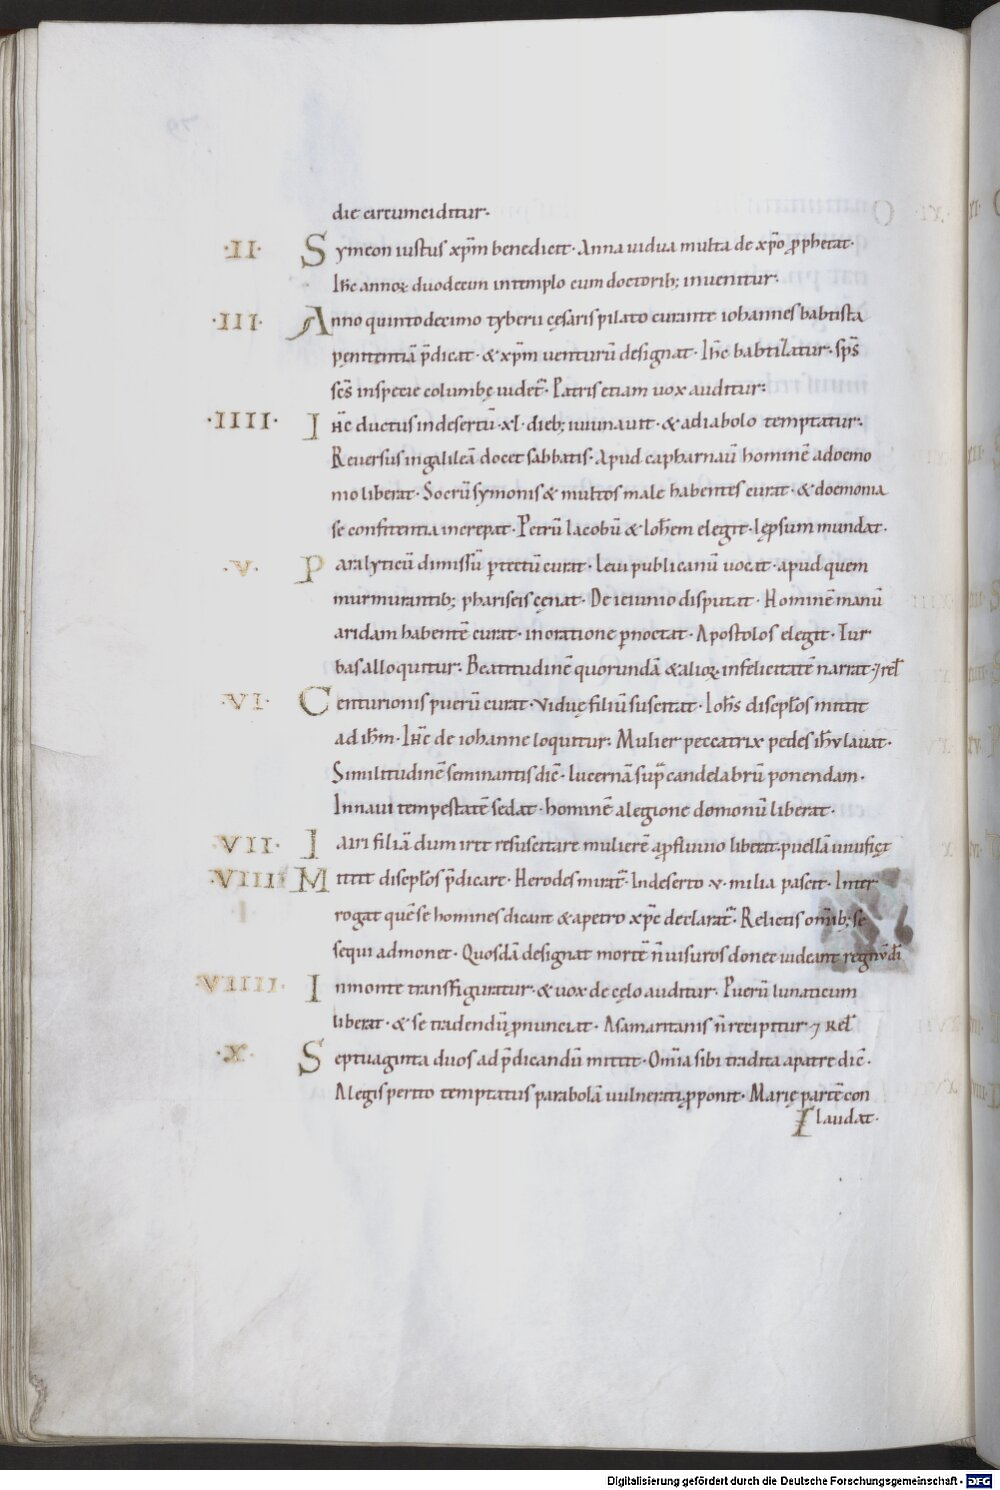 die circumciditur·
·II· Symeon iustus xp̄m benedicit· Anna uidua multa de xp̄o ꝓphetat·
Ih̄c annoꝝ duodecim in templo cum doctorib; inuenitur·
·III· Anno quintodecimo tyberii cęsaris pilato curante iohannes babtista
pęnitentiā p̄dicat· & xp̄m uenturū designat· Ih̄c babtizatur· sp̄s
sc̄s in specie columbę uidet̄· Patris etiam uox auditur:
·IIII· Ih̄c ductus in desertū ·xl· dieb; ieiunauit· & a diabolo temptatur·
Reuersus in galileā docet sabbatis· Apud capharnaū hominē a doemo
nio liberat· Socrū symonis & multos male habentes curat· & doemonia
se confitentia increpat· Petrū Iacobū & Ioh̄em elegit· lęprsum mundat·
·V· Paralyticū dimissū ꝑ tectū curat· Leui publicanū uocat· apud quem
murmurantib; phariseis cęnat· De ieiunio disputat· Hominē manū
aridam habentē curat· in oratione ꝑnoctat· Apostolos elegit· Tur
bas alloquitur: Beatitudinē quorundā & alioꝝ infelicitatē narrat· ⁊ rel̄
·VI· Centurionis puerū curat· viduę filiū suscitat· Ioh̄s discip̄los mittit
ad ih̄m· Ih̄c de iohanne loquitur: Mulier peccatrix pedes ih̄v lauat·
Similitudinē seminantis dic̄· lucernā sup̄ candelabrū ponendam·
In naui tempestatē sedat· hominē a legione demonū liberat·
·VII· Iairi filiā dum iret resuscitare mulierē a ꝓfluuio liberat· puellā uiuificat
·VIII· Mittit discip̄los p̄dicare· Herodes mirat̄· In deserto ·v· milia pascit· Inter
rogat quē se homines dicant & a petro xp̄c declarat̄· Relictis om̄ib; se
sequi admonet· Quosdā designat mortē n̄ uisuros donec uideant regnū d̄i
·VIIII· In monte transfiguratur· & uox de cęlo auditur· Puerū lunaticum
liberat· & se tradendū ꝓnunciat· A samaritanis n̄ recipitur· ⁊ rel̄
·X· Septuaginta duos ad p̄dicandū mittit· Om̄ia sibi tradita a patre dic̄·
A legisperito temptatus parabolā uulnerati ꝓponit· Marię partē con
laudat·
Digitalisierung gefördert durch die Deutsche Forschungsgemeinschaft · DFG